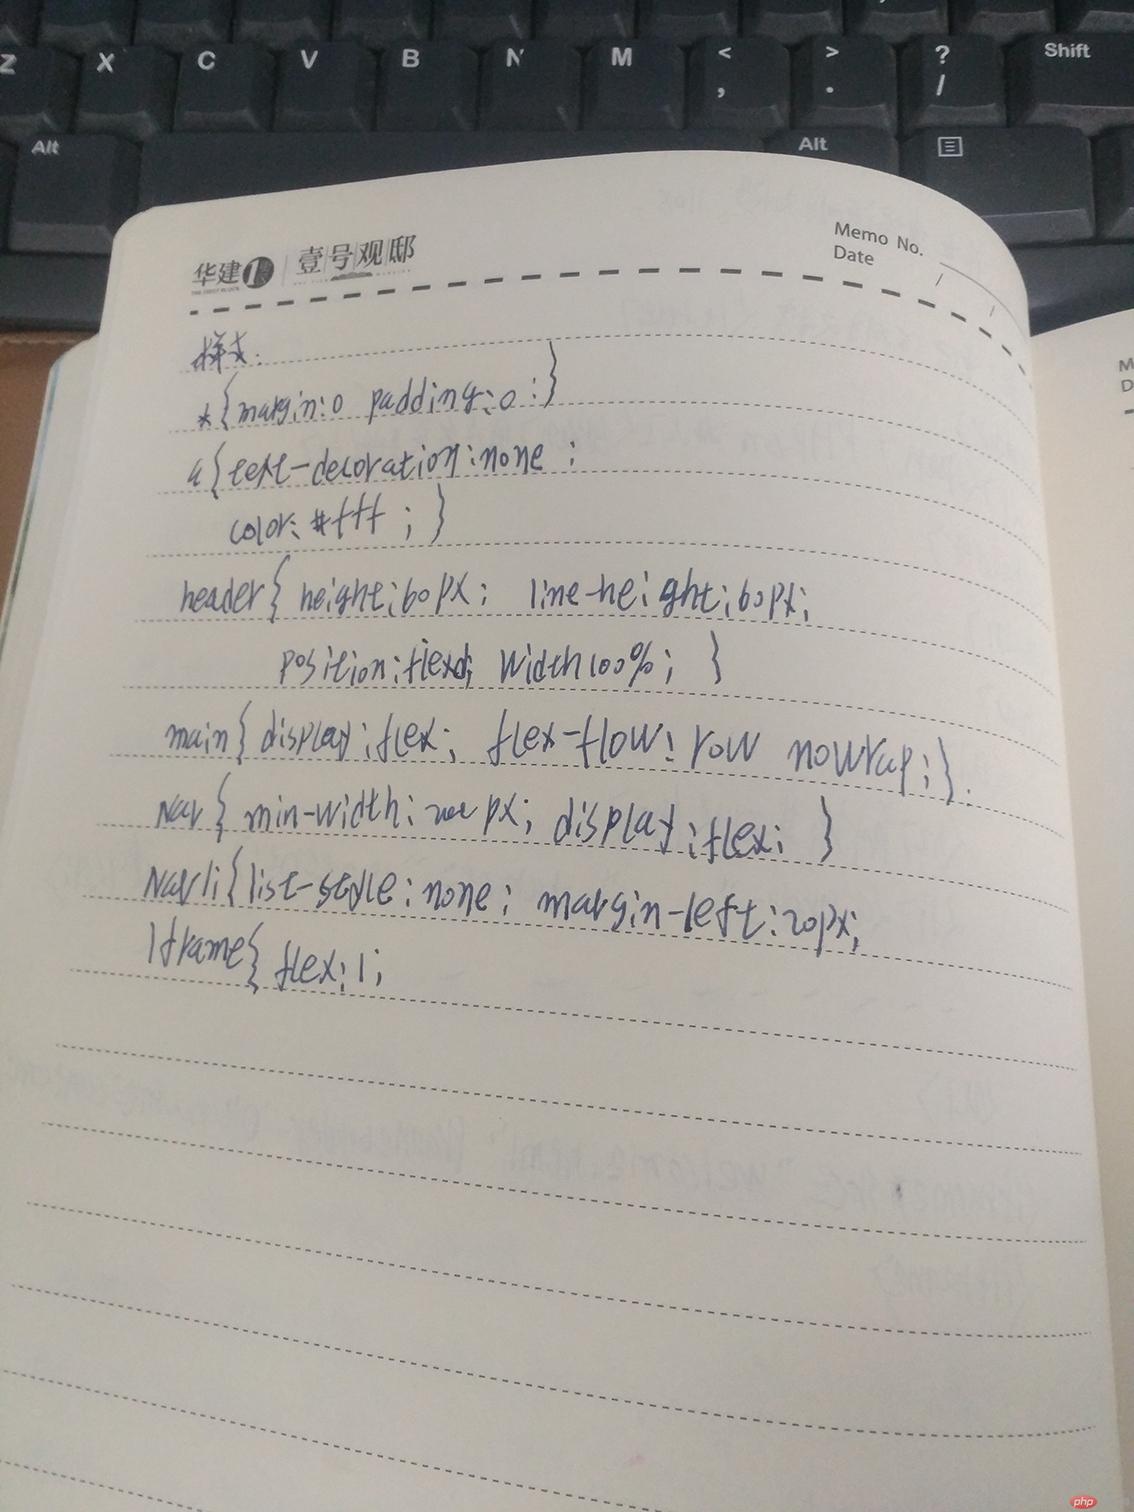 Z X C V B N M < , > . ? / Shift
Alt Alt
华建1 壹号观邸
Memo No.
Date / /
样式:
*{margin:0 padding:0 ;}
a{text-decoration:none ;
color: #fff ; }
header{ height:60px; line-height:60px;
position:flexd; width100%; }
main{ display:flex; flex-flow: row nowrap;}.
Nav{ min-width:200px; display:flex; }
Nav li{list-style:none; margin-left:20px;
Iframe{ flex:1;
php